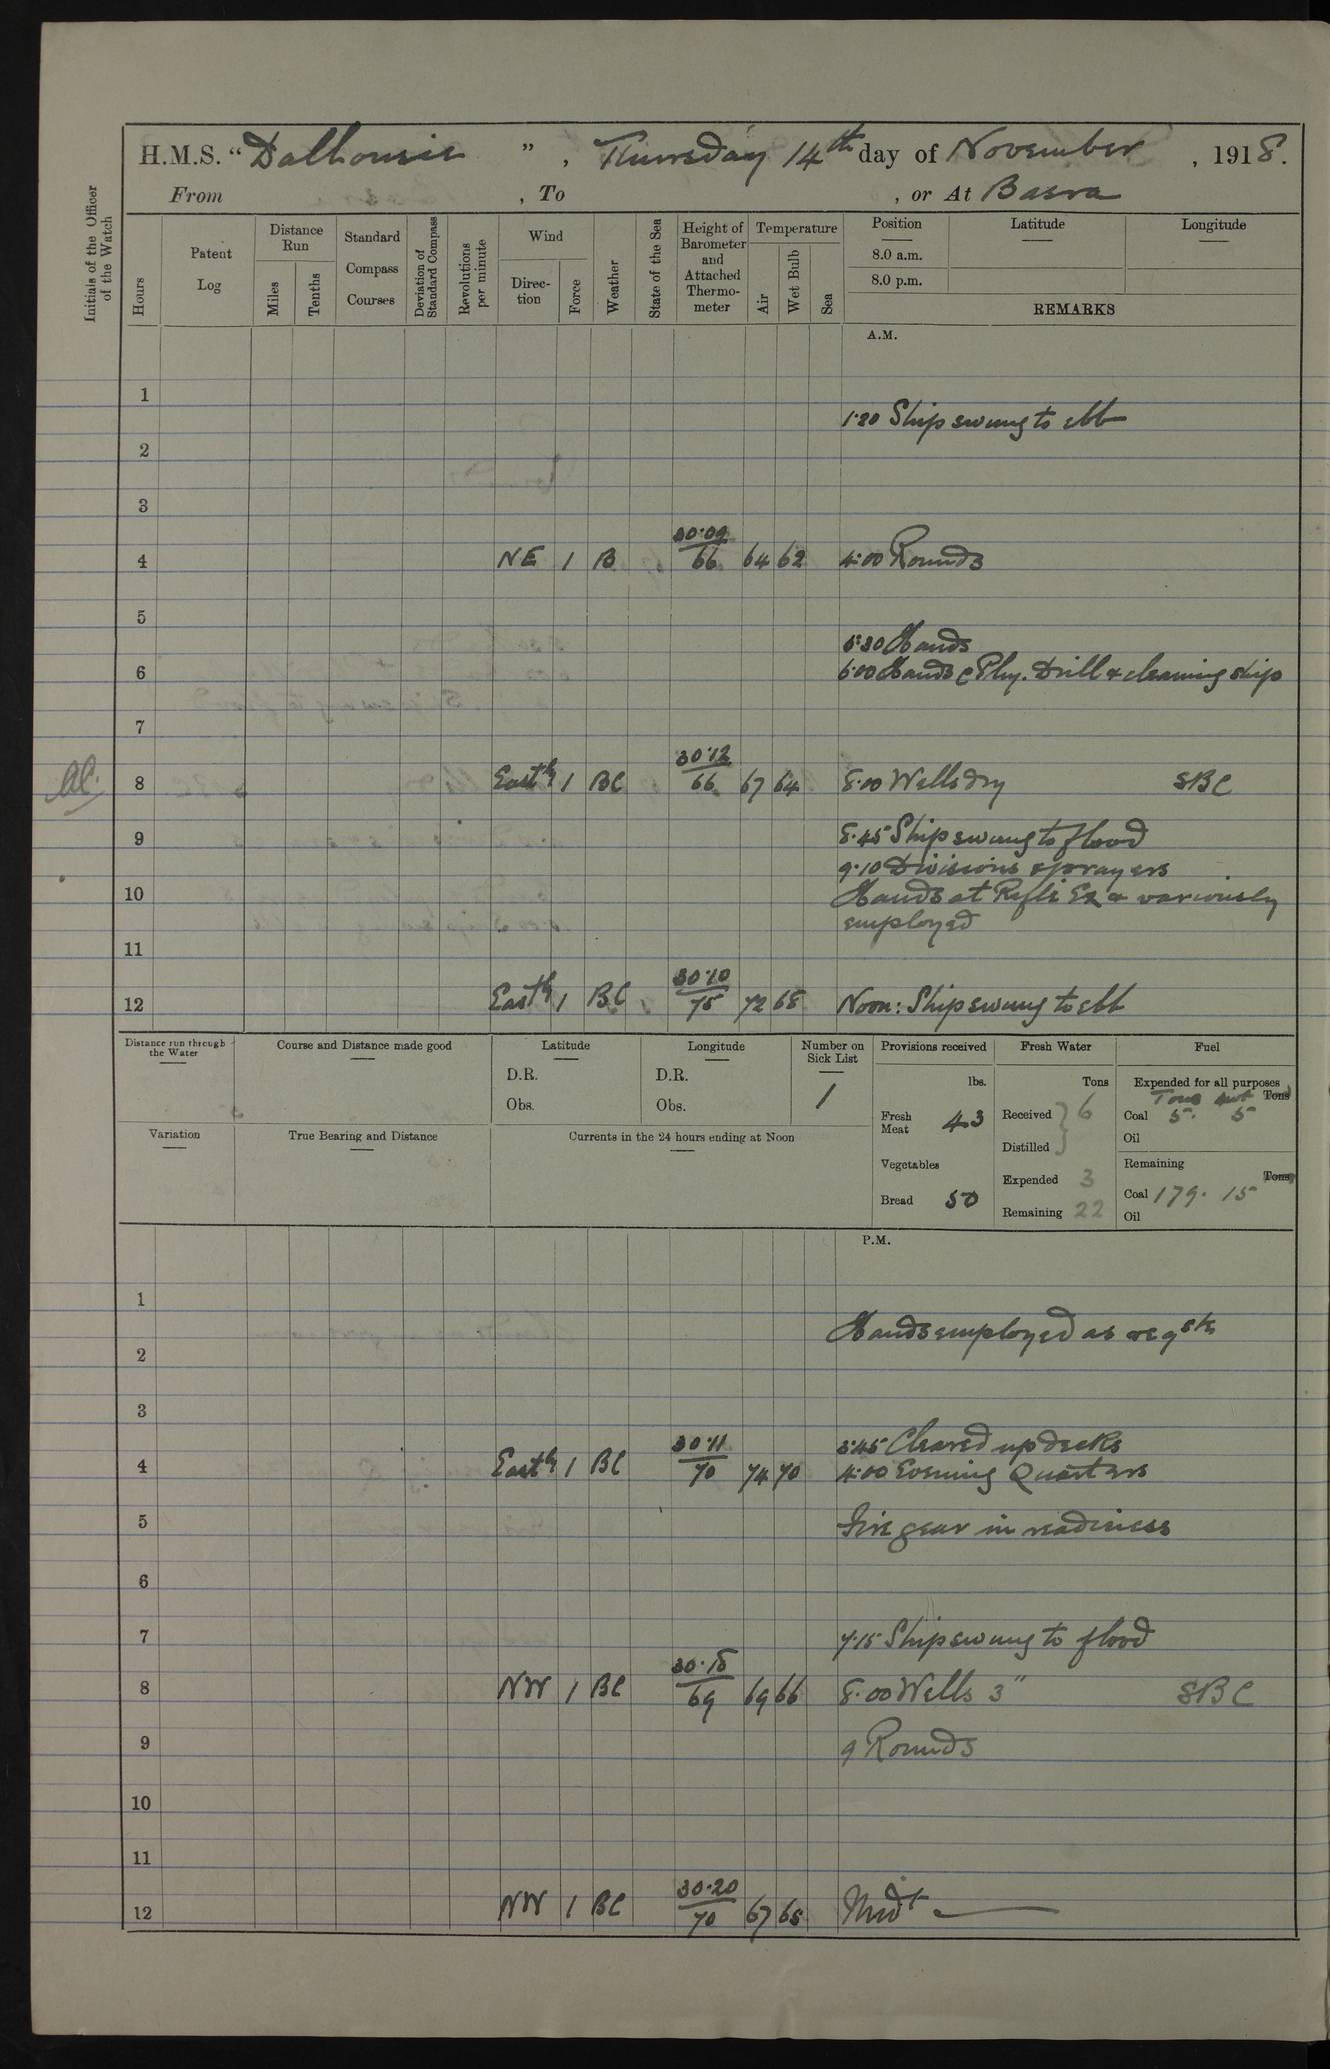 H.M.S. “ Dalhousie ” , Thursday 14th day of November , 1918.
From , To , or At Basra
Initials of the Officer of the Watch
Hours
Patent Log
Distance Run
Miles
Tenths
Standard Compass Courses
Deviation of Standard Compass
Revolutions per minute
Wind
Direction
Force
Weather
State of the Sea
Height of Barometer and Attached Thermometer
Temperature
Air
Wet Bulb
Sea
Position
8.0 a.m.
8.0 p.m.
Latitude
Longitude
REMARKS
A.M.
1
1.20 Ship swung to ebb
2
3
4 NE 1 B 30.09 66 64 62 4.00 Rounds
5
5.30 Hands
6 6.00 Hands c Phy. Drill & cleaning ship
7
8 Eastly 1 BC 30.12 66 67 64 8.00 Wells dry SBC
9 8.45 Ship swung to flood
9.10 Divisions & prayers
10 Hands at Rifle Ex & variously
employed
11
12 Eastly 1 BC 30.10 75 72 68 Noon: Ship swung to ebb
Distance run through the Water
Course and Distance made good
Latitude
D.R.
Obs.
Longitude
D.R.
Obs.
Number on Sick List
1
Provisions received
lbs.
Fresh Meat 43
Vegetables
Bread 50
Fresh Water
Tons
Received 6
Distilled
Expended 3
Remaining 22
Fuel
Expended for all purposes
Tons cwt Tons
Coal 5. 5
Oil
Remaining
Tons
Coal 179. 15
Oil
Variation
True Bearing and Distance
Currents in the 24 hours ending at Noon
P.M.
1
Hands employed as reqste
2
3
3.45 Cleared up decks
4 Eastly 1 BC 30.11 70 74 70 4.00 Evening Quarters
5 Fire gear in readiness
6
7 7.15 Ship swung to flood
8 NW 1 BC 30.18 69 69 66 8.00 Wells 3" SBC
9 9 Rounds
10
11
12 NW 1 BC 30.20 70 67 65 Midt